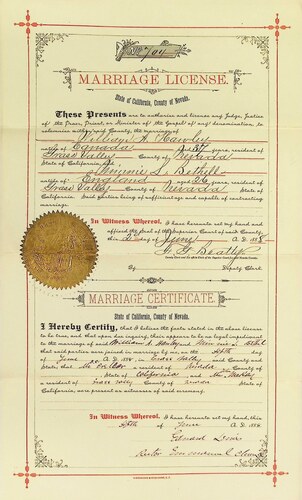 No. 704
MARRIAGE LICENSE.
State of California, County of Nevada.
These Presents are to authorize and license any Judge, Justice
of the Peace, Priest, or Minister of the Gospel of any denomination, to
solemnize within said County, the marriage of
William H. Hawley
native of Canada, aged 37 years, resident of
Grass Valley County of Nevada
State of California, and
Minnie S. Bethell
native of England, aged 26 years, resident of
Grass Valley County of Nevada
State of California. Said parties being of sufficient age and capable of contracting
marriage.
In Witness Whereof, I have hereunto set my hand and
affixed the seal of the Superior Court of said County,
this day of June A. D. 188
Beatty
Deputy Clerk.
MARRIAGE CERTIFICATE.
State of California, County of Nevada.
I Hereby Certify, that I believe the facts stated in the above license
to be true, and that upon due inquiry, there appears to be no legal impediment
to the marriage of said William H. Hawley and Minnie S. Bethell
that said parties were joined in marriage by me, on the day
of June 188 in Grass Valley said County and
State; that of Nevada County
State of California and Mrs.
a resident of Grass Valley County of Nevada State of
California, were present as witnesses of said ceremony.
In Witness Whereof, I have hereunto set my hand, this
day of June A. D. 188
Edward Lewis
Rector Emmanuel Church